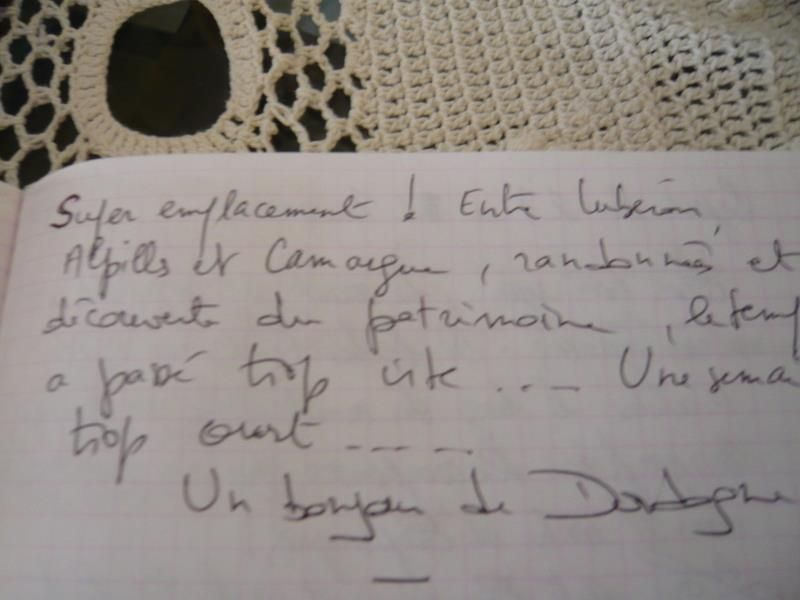 Super emplacement ! Entre Lubéron,
Alpilles et Camargue, randonnées et
découverte du patrimoine, le temp
a passé trop vite .... Une sema
trop court ....
Un bonjour de Dordogne